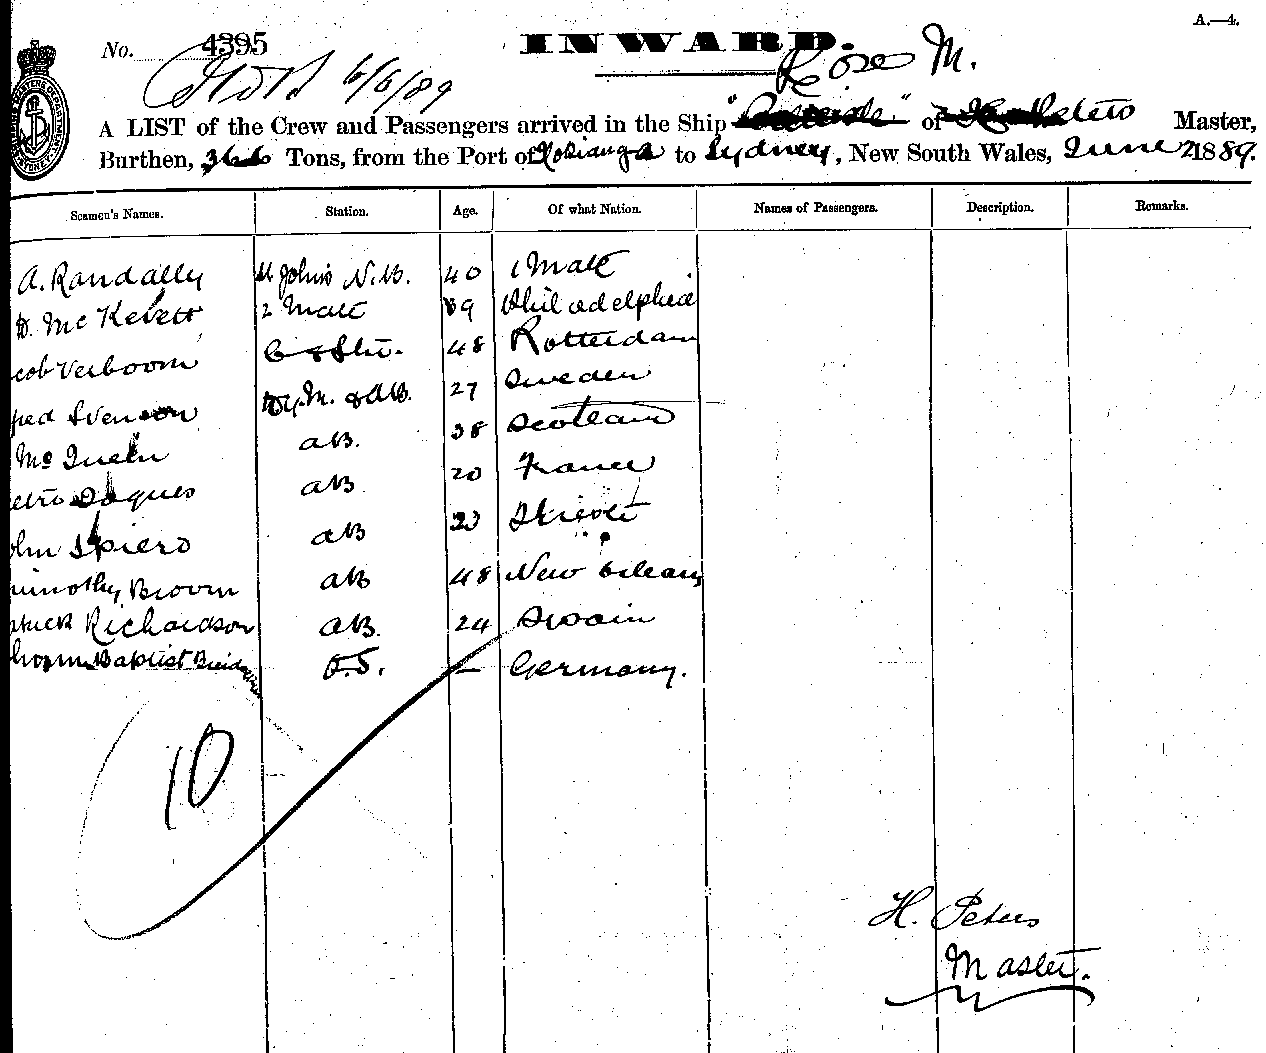 A.—4.
No. 4395
INWARD.
6/6/89
Rose M.
A LIST of the Crew and Passengers arrived in the Ship " " of Master,
Burthen, 366 Tons, from the Port of Hokianga to Sydney, New South Wales, June 2 1889.
Seamen's Names. Station. Age. Of what Nation. Names of Passengers. Description. Remarks.
A. Randally St Johns N.B. 40 1 Mate
D. McKevett 2 Mate 39 Philadelphia
cob Verboom C & Std. 48 Rotterdam
fred Svenson Dy. M. & AB. 27 Sweden
Mc Queen AB. 38 Scotland
etro Jaques AB 20 France
ohn Spiero AB 23
imothy Brown AB 48 New Orleans
atrick Richardson AB. 24 Swain
Baptist O.S. — Germany.
10
H. Peters
Master.